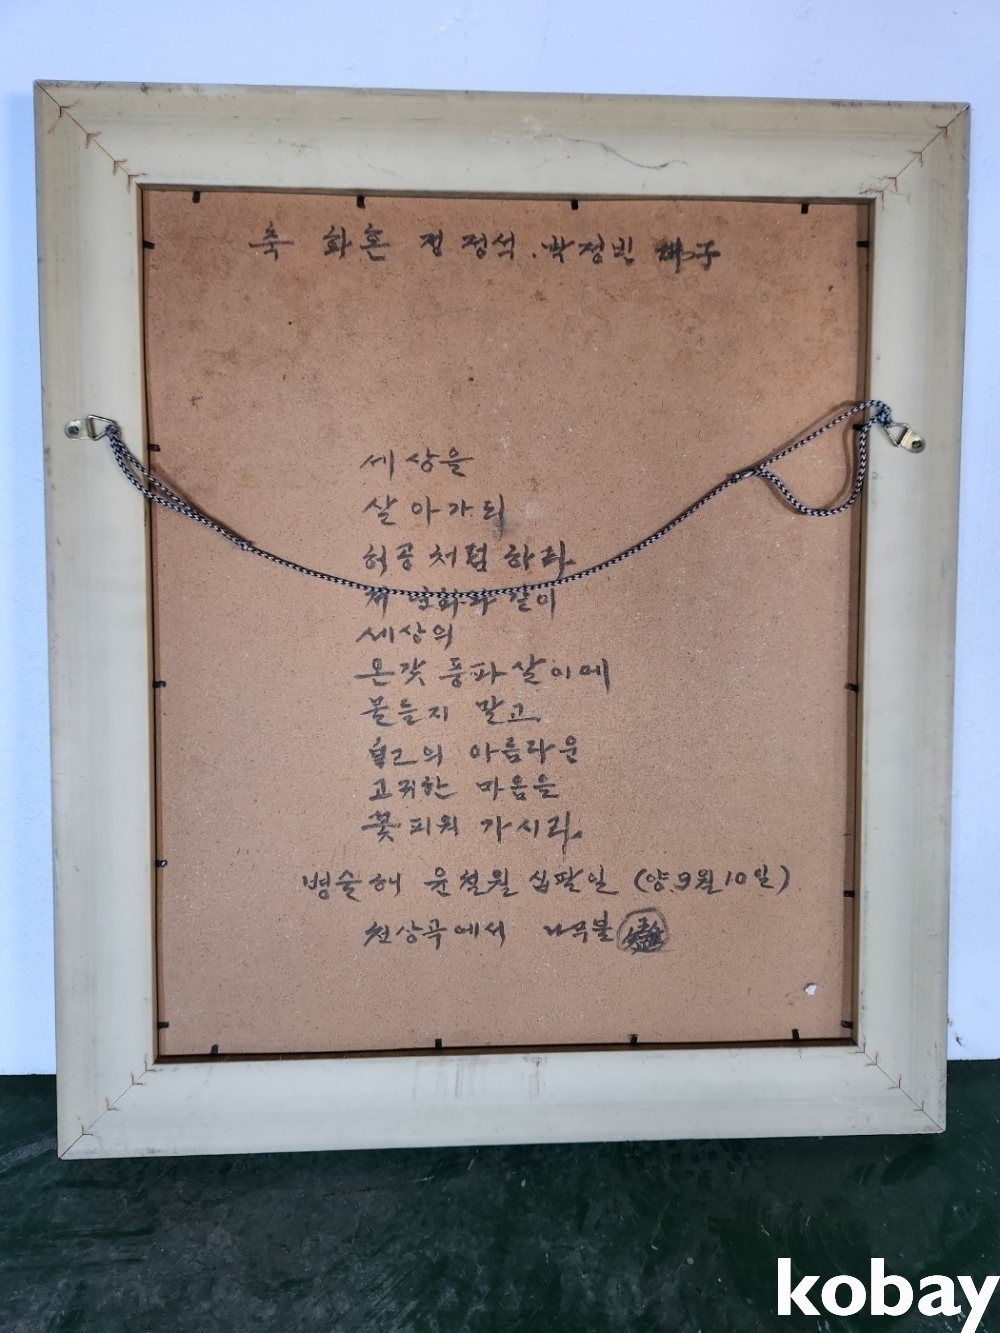 축 화혼 정정석.박정빈
세상을
살아가되
허공처럼 하라
저 연화와 같이
세상의
온갖 풍파살이에
물들지 말고
自己의 아름다운
고귀한 마음을
꽃피워 가시라
병술해 윤칠월 십팔일 (양9월10일)
천상곡에서 나무불
kobay